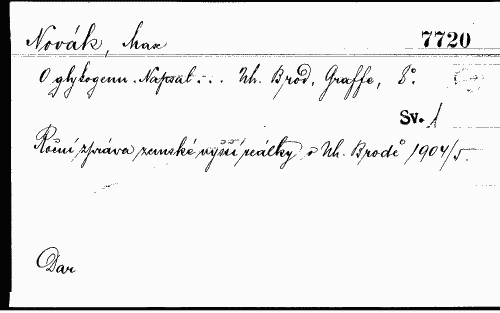 Novák, Max
7720
O glykogenu. Napsal ... Uh. Brod, Graffe, 8°.
Sv. 1
Roční zpráva zemské vyšší reálky v Uh. Brodě 1904/5.
Dar